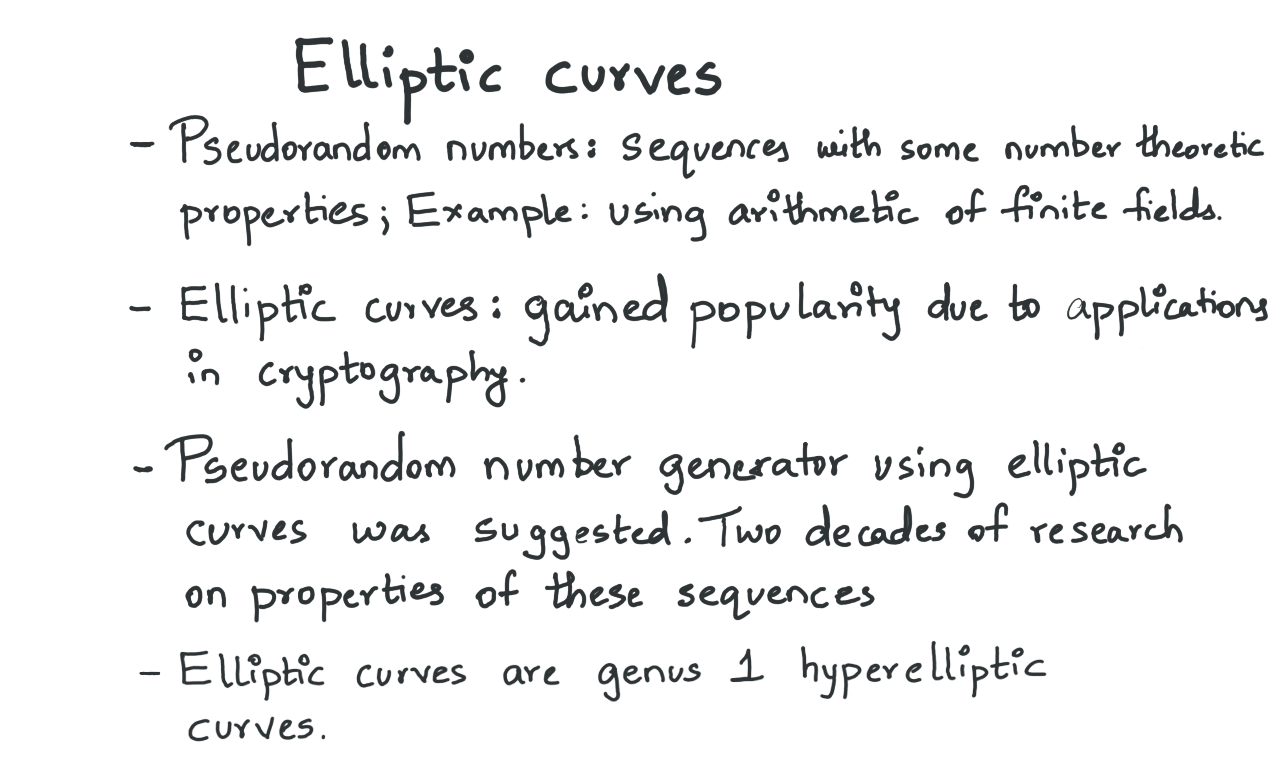 Elliptic curves
- Pseudorandom numbers: sequences with some number theoretic
properties; Example: using arithmetic of finite fields.
- Elliptic curves: gained popularity due to applications
in cryptography.
- Pseudorandom number generator using elliptic
curves was suggested. Two decades of research
on properties of these sequences
- Elliptic curves are genus 1 hyperelliptic
curves.